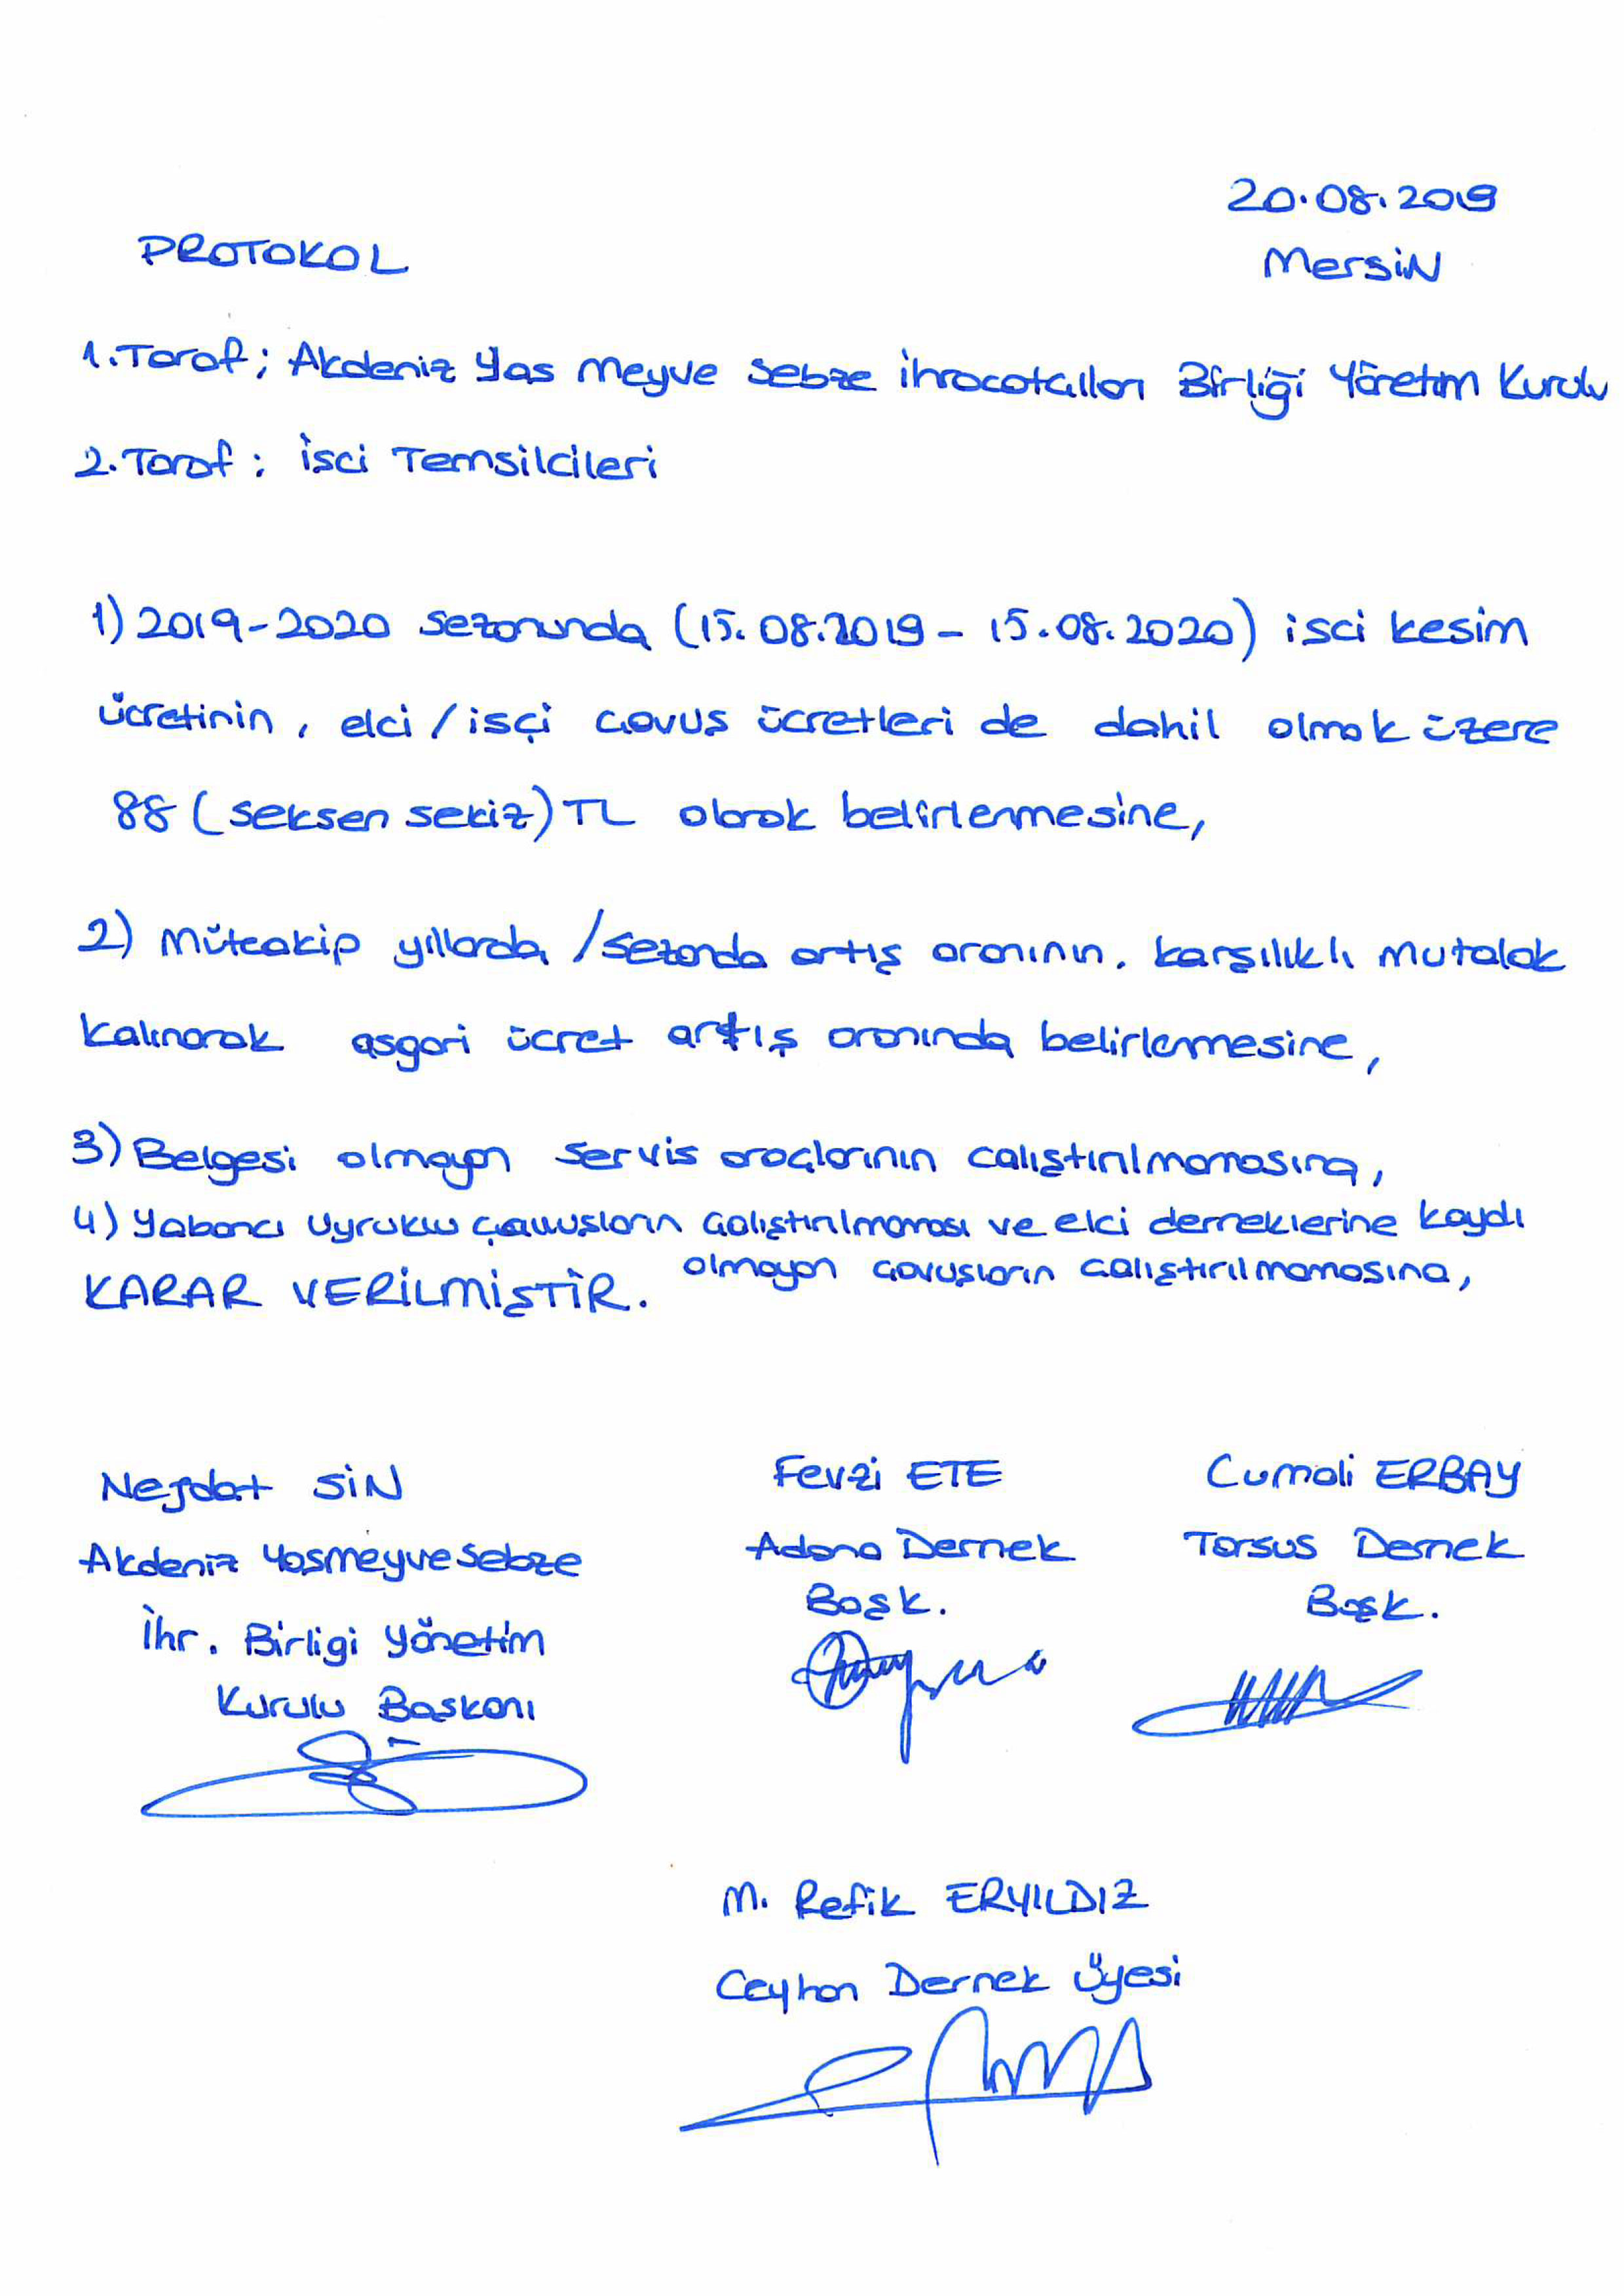 20.08.2019
PROTOKOL
Mersin
1. Taraf; Akdeniz Yas Meyve Sebze İhracatcıları Birliği Yönetim Kurulu
2. Taraf; İsci Temsilcileri
1) 2019-2020 sezonunda (15.08.2019 - 15.08.2020) isci kesim
ücretinin, elci/isçi cavus ücretleri de dahil olmak üzere
88 (seksen sekiz) TL olarak belirlenmesine,
2) Müteakip yıllarda/sezonda artış oranının, karşılıklı mutalak
kalınarak asgari ücret artış oranında belirlemesine,
3) Belgesi olmayan servis araçlarının calıştırılmamasına,
4) Yabancı uyruklu çavusların calıştırılmaması ve elci derneklerine kaydı
olmayan cavuşların calıştırılmamasına,
KARAR VERİLMİŞTİR.
Nejdat SİN
Akdeniz Yasmeyvesebze
İhr. Birligi Yönetim
Kurulu Baskanı
Fevzi ETE
Adana Dernek
Başk.
Cumali ERBAY
Tarsus Dernek
Başk.
M. Refik ERYILDIZ
Ceyhan Dernek Üyesi